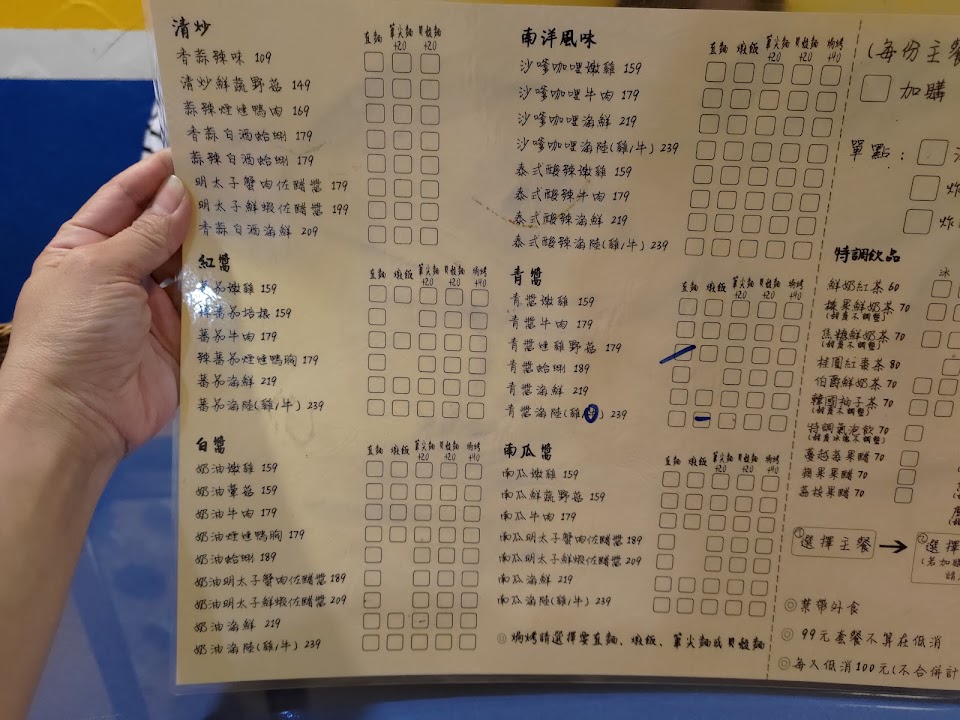 清炒
直麵 筆尖麵+20 貝殼麵+20
香蒜辣味 109
清炒鮮蔬野菇 149
蒜辣煙燻鴨肉 169
香蒜白酒蛤蜊 179
蒜辣白酒蛤蜊 179
明太子蟹肉佐醋醬 179
明太子鮮蝦佐醋醬 199
香蒜白酒海鮮 209
紅醬
直麵 燉飯 筆尖麵+20 貝殼麵+20 焗烤+40
蕃茄嫩雞 159
辣蕃茄培根 159
蕃茄牛肉 179
辣蕃茄煙燻鴨胸 179
蕃茄海鮮 219
蕃茄海陸(雞/牛) 239
白醬
直麵 燉飯 筆尖麵+20 貝殼麵+20 焗烤+40
奶油嫩雞 159
奶油蕈菇 159
奶油牛肉 179
奶油煙燻鴨胸 179
奶油蛤蜊 189
奶油明太子蟹肉佐醋醬 189
奶油明太子鮮蝦佐醋醬 209
奶油海鮮 219
奶油海陸(雞/牛) 239
南洋風味
直麵 燉飯 筆尖麵+20 貝殼麵+20 焗烤+40
沙嗲咖哩嫩雞 159
沙嗲咖哩牛肉 179
沙嗲咖哩海鮮 219
沙嗲咖哩海陸(雞/牛) 239
泰式酸辣嫩雞 159
泰式酸辣牛肉 179
泰式酸辣海鮮 219
泰式酸辣海陸(雞/牛) 239
青醬
直麵 燉飯 筆尖麵+20 貝殼麵+20 焗烤+40
青醬嫩雞 159
青醬牛肉 179
青醬燻雞野菇 179
青醬蛤蜊 189
青醬海鮮 219
青醬海陸(雞/牛) 239
南瓜醬
直麵 燉飯 筆尖麵+20 貝殼麵+20 焗烤+40
南瓜嫩雞 159
南瓜鮮蔬野菇 159
南瓜牛肉 179
南瓜明太子蟹肉佐醋醬 189
南瓜明太子鮮蝦佐醋醬 209
南瓜海鮮 219
南瓜海陸(雞/牛) 239
◎焗烤請選擇要直麵、燉飯、筆尖麵或貝殼麵
(每份主餐
加購
單點:
炸
炸
特調飲品
冰
鮮奶紅茶 60
榛果鮮奶茶 70
(甜度不調整)
焦糖鮮奶茶 70
(甜度不調整)
桂圓紅棗茶 80
伯爵鮮奶茶 70
韓國柚子茶 70
(甜度不調整)
特調氣泡飲 70
(甜度冰塊不調整)
蔓越莓果醋 70
蘋果果醋 70
荔枝果醋 70
①選擇主餐 → ②選擇
(若加購
◎禁帶外食
◎99元套餐不算在低消
◎每人低消100元(不合併計